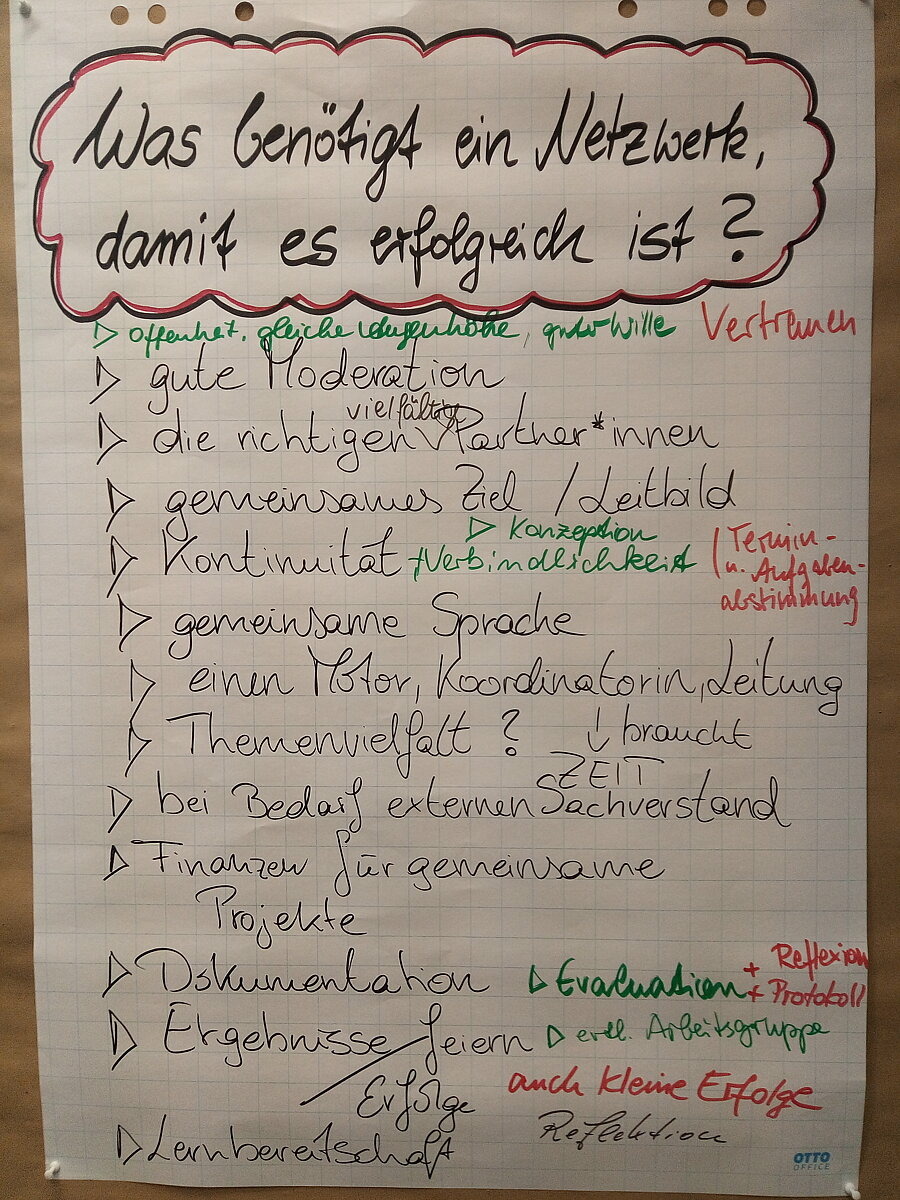 Was benötigt ein Netzwerk,
damit es erfolgreich ist?
▷ Offenheit, gleiche Augenhöhe, guter Wille Vertrauen
▷ gute Moderation
vielfältig
▷ die richtigen V Partner*innen
▷ gemeinsames Ziel / Leitbild
▷ Konzeption
▷ Kontinuität + Verbindlichkeit / Termin-
u. Aufgaben-
abstimmung
▷ gemeinsame Sprache
▷ einen Motor, Koordinatorin, Leitung
▷ Themenvielfalt? ↓ braucht
ZEIT
▷ bei Bedarf externen Sachverstand
▷ Finanzen für gemeinsame
Projekte
▷ Dokumentation ▷ Evaluation + Reflexion
+ Protokoll
▷ Ergebnisse feiern ▷ evtl. Arbeitsgruppe
/ Erfolge auch kleine Erfolge
Reflektion
▷ Lernbereitschaft
OTTO
OFFICE